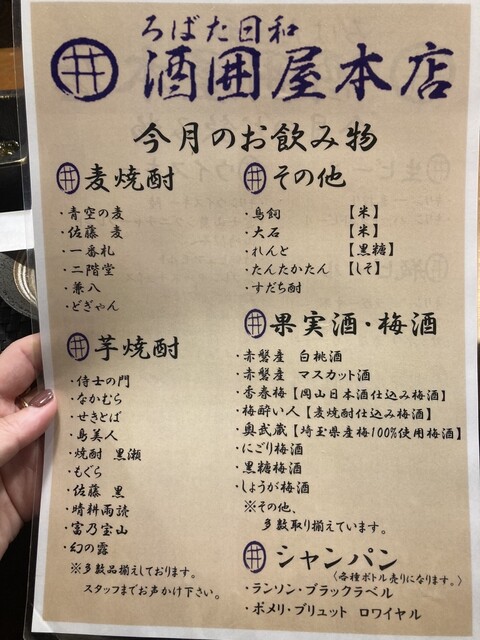 ろばた日和
酒囲屋本店
今月のお飲み物
麦焼酎
・青空の麦
・佐藤 麦
・一番札
・二階堂
・兼八
・どぎゃん
芋焼酎
・侍士の門
・なかむら
・せきとば
・島美人
・焼酎 黒瀬
・もぐら
・佐藤 黒
・晴耕雨読
・富乃宝山
・幻の露
※多数品揃えしております。
スタッフまでお声かけ下さい。
その他
・鳥飼 【米】
・大石 【米】
・れんと 【黒糖】
・たんたかたん 【しそ】
・すだち酎
果実酒・梅酒
・赤磐産 白桃酒
・赤磐産 マスカット酒
・香春梅【岡山日本酒仕込み梅酒】
・梅酔い人【麦焼酎仕込み梅酒】
・奥武蔵【埼玉県産梅100%使用梅酒】
・にごり梅酒
・黒糖梅酒
・しょうが梅酒
※その他、
多数取り揃えています。
シャンパン
〈各種ボトル売りになります。〉
・ランソン・ブラックラベル
・ポメリ・ブリュット ロワイヤル